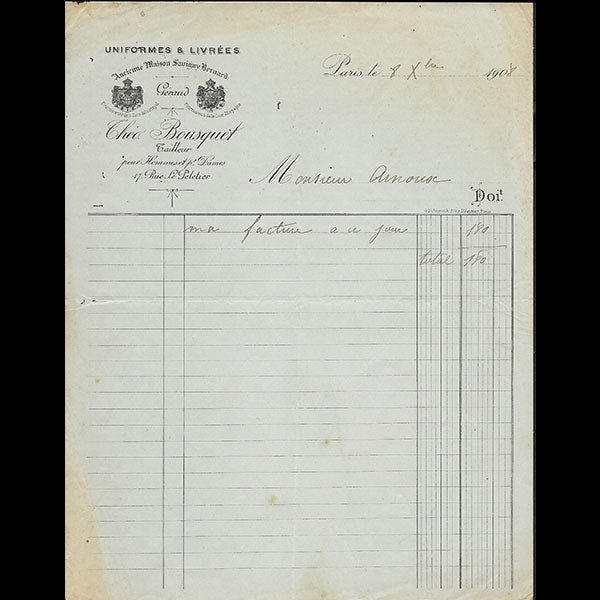 UNIFORMES & LIVRÉES
Ancienne Maison Savigny-Bernard
Géraud
Théo. Bousquet
Tailleur
pour Hommes et pr. Dames
17, Rue Le Peletier
Paris, le 8 Xbre 1908
Monsieur Arnoux
Doit
ma facture a ce jour 180
total 180